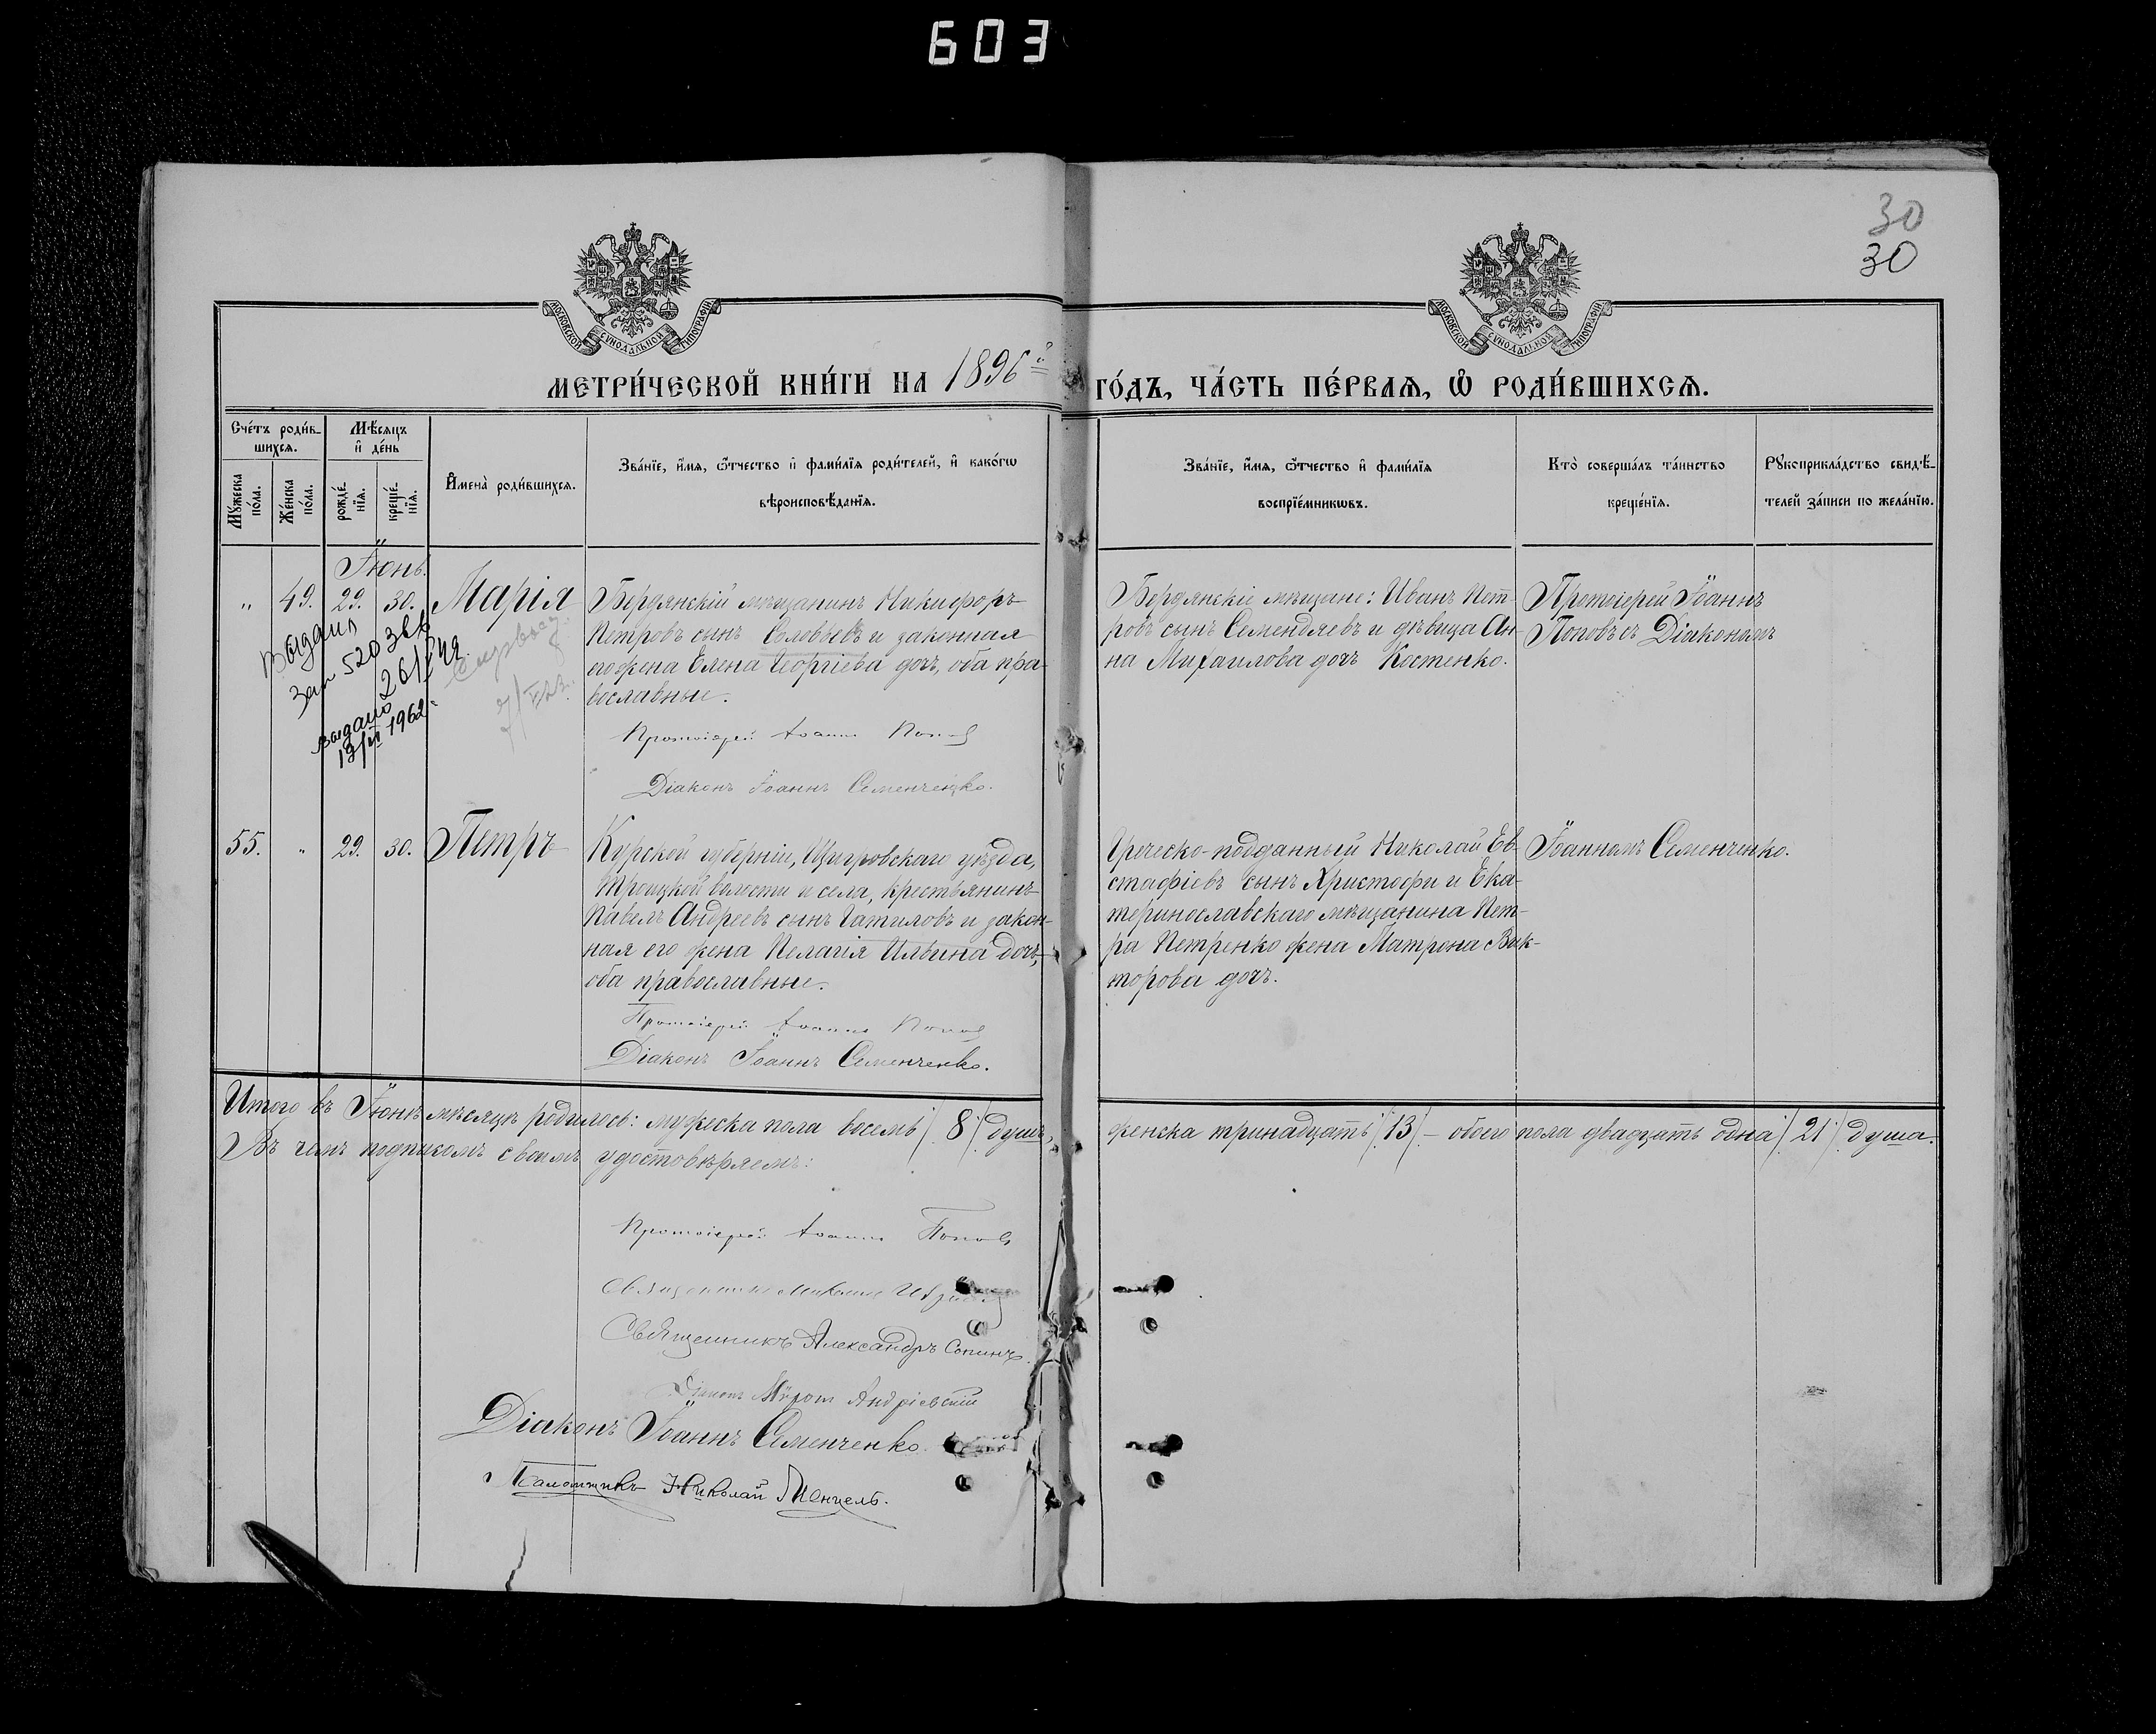 603
30
30
МОСКОВСКОЙ СѴНОДАЛЬНОЙ ТИПОГРАФІИ
МОСКОВСКОЙ СѴНОДАЛЬНОЙ ТИПОГРАФІИ
МЕТРИ́ЧЕСКОЙ КНИ́ГИ НА 1896й ГО́ДЪ, ЧА́СТЬ ПЕ́РВАѦ, Ѡ҆ РОДИ́ВШИХСѦ.
Сче́тъ роди́в-
шихсѧ.
Мѣ́сѧцъ
и҆ де́нь
Мꙋ́жеска
по́ла.
Же́нска
по́ла.
рожде́-
нїѧ.
креще́-
нїѧ.
И҆мена̀ роди́вшихсѧ.
Зва́нїе, и҆́мѧ, ѻ҆́тчество и҆ фами́лїѧ роди́телей, и҆ како́гѡ
вѣроисповѣ́данїѧ.
Зва́нїе, и҆́мѧ, ѻ҆́тчество и҆ фами́лїѧ
воспрїе́мникѡвъ.
Кто̀ соверша́лъ та́инство
креще́нїѧ.
Рꙋкоприкла́дство свидѣ́-
телей за́писи по жела́нїю.
Іюнь.
" 49. 29. 30. Марія
Бердянскій мѣщанинъ Никифоръ
Петровъ сынъ Соловьевъ и законная
его жена Елена Георгіева дочь, оба пра-
вославные.
Протоіерей Іоаннъ Поповъ
Діаконъ Іоаннъ Семенченко.
Бердянскіе мѣщане: Иванъ Пет-
ровъ сынъ Семендяевъ и дѣвица Ан-
на Михаилова дочь Костенко.
Протоіерей Іоаннъ
Поповъ съ Діакономъ
Выдана
520
выдано
13/VI 1962
55. " 29. 30. Петръ
Курской губерніи, Щигровскаго уѣзда,
Троицкой волости и села, крестьянинъ
Павелъ Андреевъ сынъ Гатиловъ и закон-
ная его жена Пелагія Ильина дочь,
оба православные.
Протоіерей Іоаннъ Поповъ
Діаконъ Іоаннъ Семенченко.
Греческо-подданный Николай Ев-
стафіевъ сынъ Христофи и Ека-
теринославскаго мѣщанина Пет-
ра Петренко жена Матрона Вик-
торова дочь.
Іоанномъ Семенченко.
Итого въ Іюнѣ мѣсяцѣ родилось: мужеска пола восемь /8/ душъ, женска тринадцать /13/ – обоего пола двадцать одна /21/ душа.
Въ чемъ подписомъ своимъ удостовѣряемъ:
Протоіерей Іоаннъ Поповъ
Священникъ
Священникъ Александръ Сопинъ
Діаконъ Андріевскій
Діаконъ Іоаннъ Семенченко.
Псаломщикъ Николай Менцель.